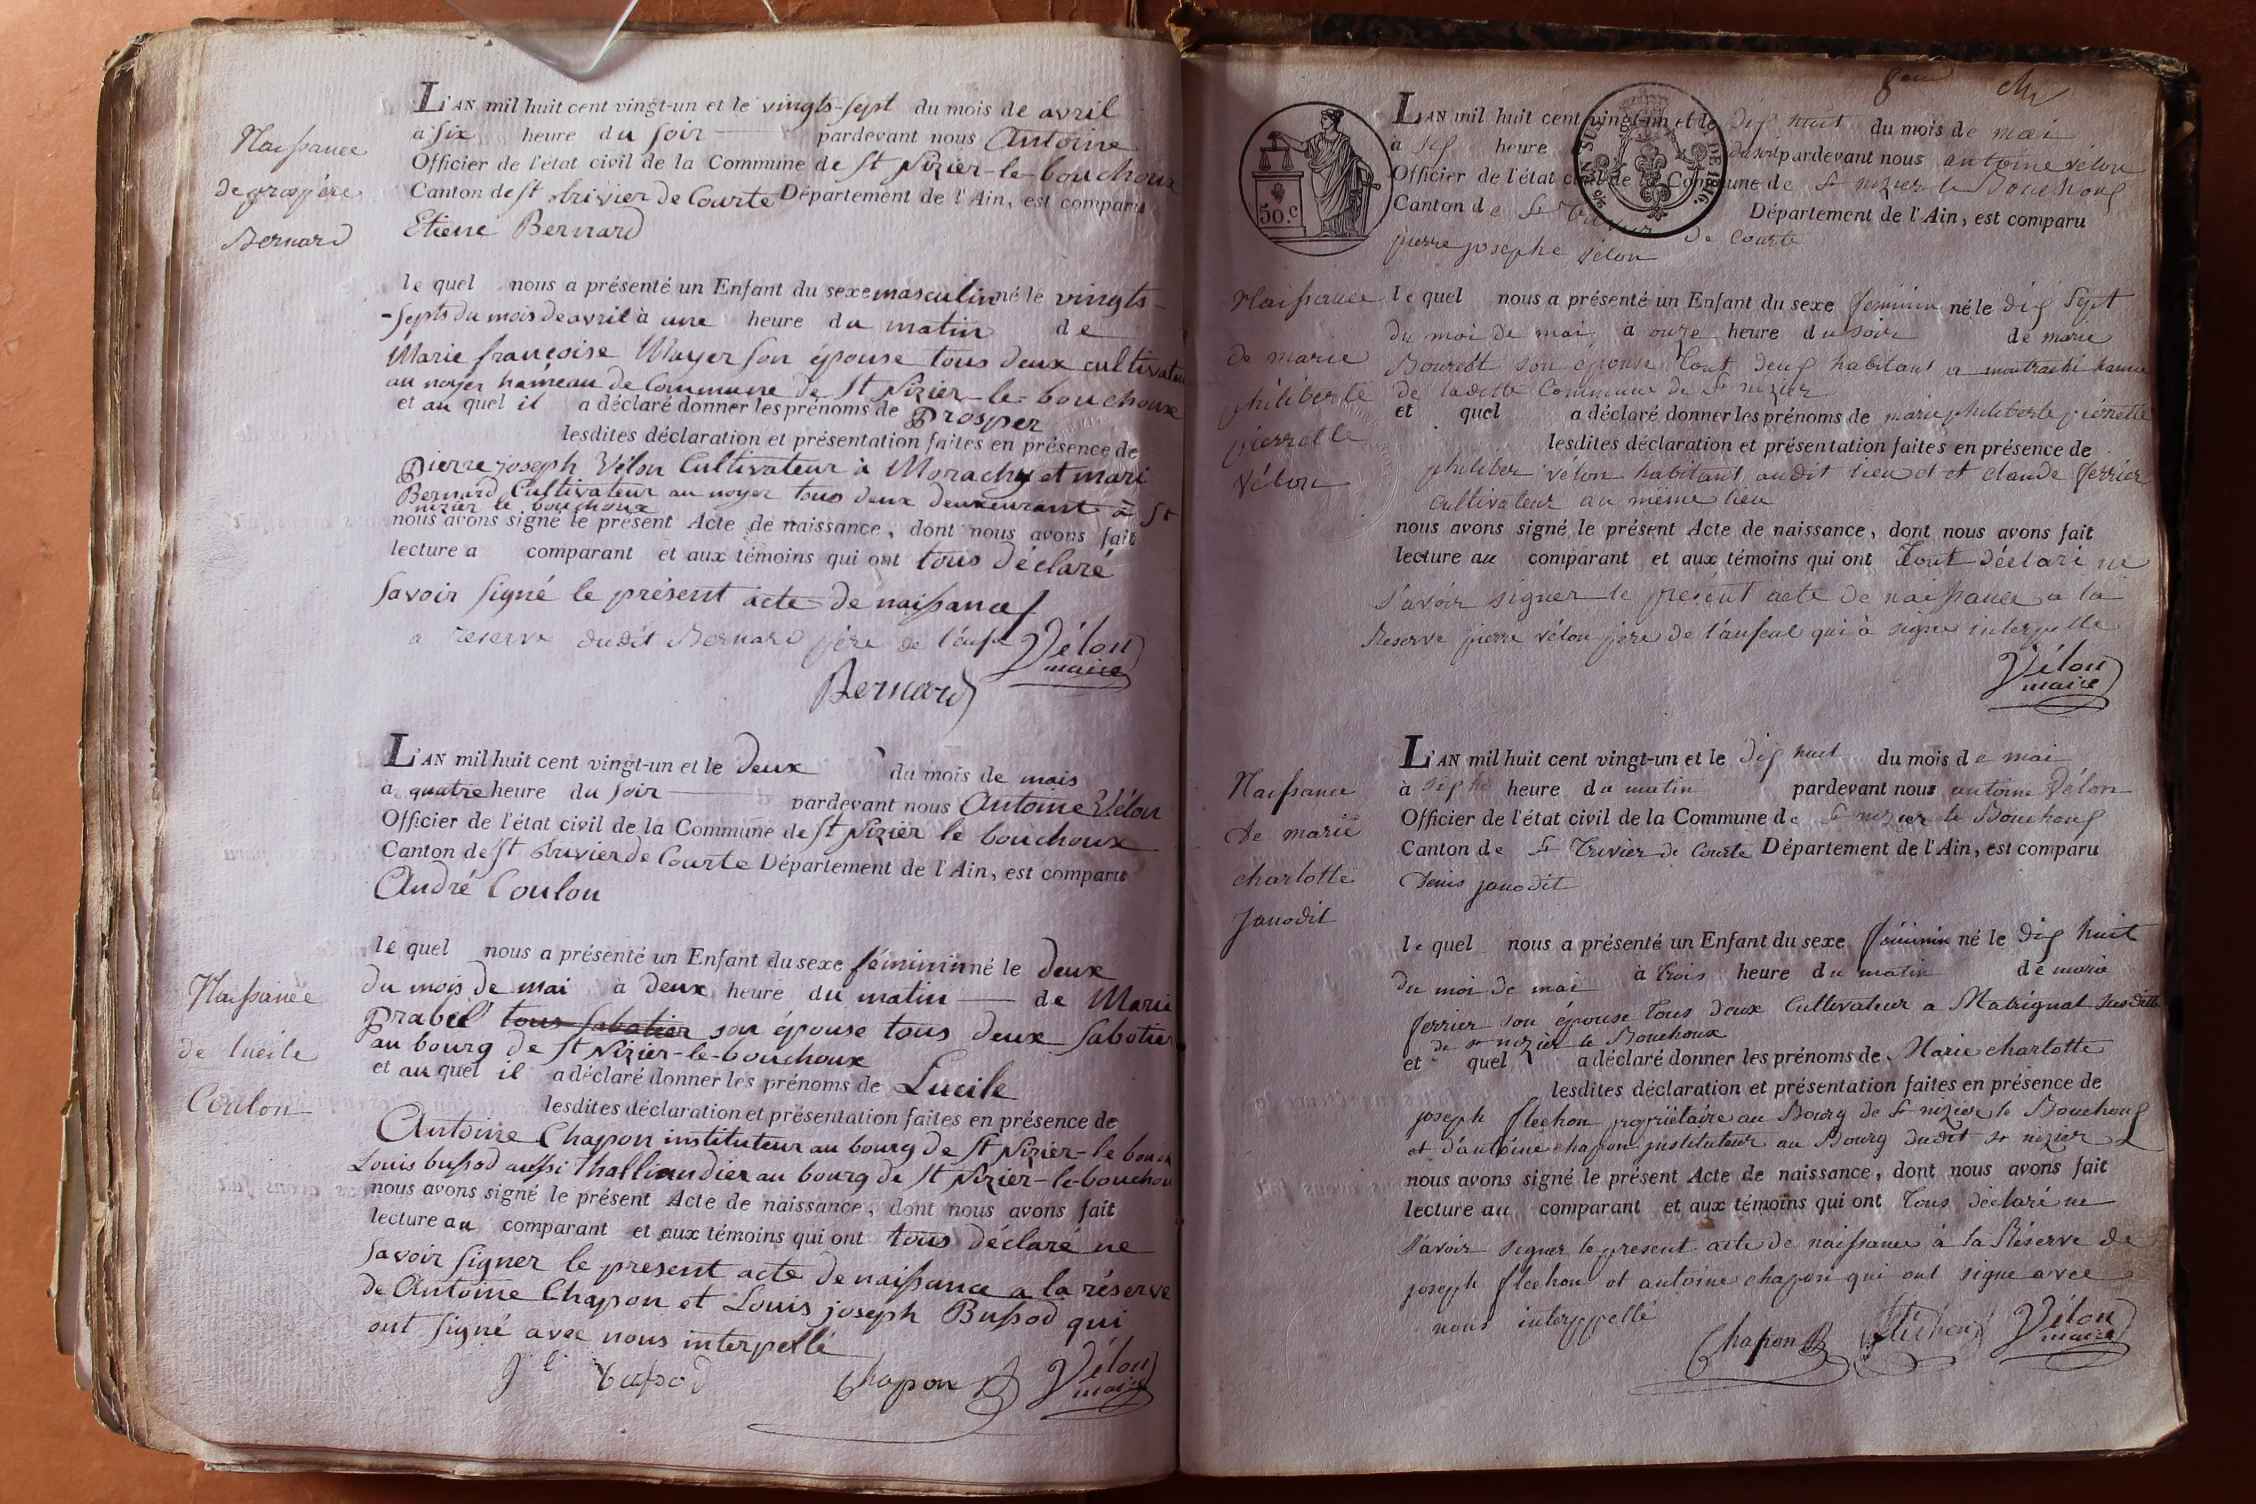 Naissance
de prospère
Bernard
L'AN mil huit cent vingt-un et le vingts-sept du mois de avril
à six heure du soir pardevant nous Antoine
Officier de l'état civil de la Commune de St Nizier-le-bouchoux
Canton de St trivier de Courte Département de l'Ain, est comparu
Etiene Bernard
le quel nous a présenté un Enfant du sexe masculin né le vingts-
-septs du mois de avril à une heure du matin de
Marie françoise Mayer son épouse tous deux cultivateur
au noyer hameau de Commune de St Nizier-le-bouchoux
et au quel il a déclaré donner les prénoms de Prosper
lesdites déclaration et présentation faites en présence de
Pierre joseph Vélon Cultivateur à Morachy et mari
Bernard Cultivateur au noyer tous deux deumeurant à St
nizier le bouchoux
nous avons signé le présent Acte de naissance, dont nous avons fait
lecture a comparant et aux témoins qui ont tous déclaré
savoir signé le présent acte de naissance
a reserve dudit Bernard père de l'enfa
Vélon
maire
Bernard
Naissance
de lucile
Coulon
L'AN mil huit cent vingt-un et le deux du mois de mais
à quatre heure du soir pardevant nous Antoine Vélon
Officier de l'état civil de la Commune de St Nizier le bouchoux
Canton de St trivier de Courte Département de l'Ain, est comparu
André Coulon
le quel nous a présenté un Enfant du sexe féminin né le deux
du mois de mai à deux heure du matin de Marie
Prabel tous sabotier son épouse tous deux sabotier
au bourg de St Nizier-le-bouchoux
et au quel il a déclaré donner les prénoms de Lucile
lesdites déclaration et présentation faites en présence de
Antoine Chapon instituteur au bourg de St Nizier-le bouch
Louis bussod aussi thalliandier au bourg de St Nizier-le-bouchou
nous avons signé le présent Acte de naissance, dont nous avons fait
lecture au comparant et aux témoins qui ont tous déclaré ne
savoir signer le present acte de naissance a la réserve
de Antoine Chapon et Louis joseph Bussod qui
ont signé avec nous interpellé
Bussod Chapon Vélon
maire
8eme
50.c
EN SUS
DE 1816.
L'AN mil huit cent vingt-un et le dix huit du mois de mai
à six heure du soir pardevant nous antoine vélon
Officier de l'état civil de la Commune de St nizier le Bouchoux
Canton de St Trivier de Courte Département de l'Ain, est comparu
pierre josephe vélon
Naissance
de marie
philiberte
pierrette
Vélon
le quel nous a présenté un Enfant du sexe feminin né le dix sept
du moi de mai à onze heure du soir de marie
Bourdit son épouse tout deux habitant a hamau
de laditte Commune de St nizier
et quel a déclaré donner les prénoms de marie philiberte pierrette
lesdites déclaration et présentation faites en présence de
philiber vélon habitant audit lieu et et claude ferrier
cultivateur au même lieu
nous avons signé le présent Acte de naissance, dont nous avons fait
lecture au comparant et aux témoins qui ont tout déclaré ne
s'avoir signer le présent acte de naissance a la
Reserve pierre vélon pere de l'anfent qui à signé interpelle
Vélon
maire
Naissance
de marie
charlotte
Janodit
L'AN mil huit cent vingt-un et le dix huit du mois de mai
à heure du matin pardevant nous antoine Vélon
Officier de l'état civil de la Commune de St nizier le Bouchoux
Canton de St Trivier de Courte Département de l'Ain, est comparu
Denis janodit
le quel nous a présenté un Enfant du sexe féminin né le dix huit
du moi de mai à trois heure du matin de marie
ferrier son épouse tous deux Cultivateur a Matrignat
de st nizier le Bouchoux
et quel a déclaré donner les prénoms de Marie charlotte
lesdites déclaration et présentation faites en présence de
joseph flechon propriétaire au Bourg de St nizier le Bouchoux
et d'antoine chapon instituteur au Bourg dudit st nizier
nous avons signé le présent Acte de naissance, dont nous avons fait
lecture au comparant et aux témoins qui ont tous déclaré ne
s'avoir signer le present acte de naissance à la Réserve de
joseph flechon et antoine chapon qui ont signe avec
nous interppellé
Chapon fléchon Vélon
maire